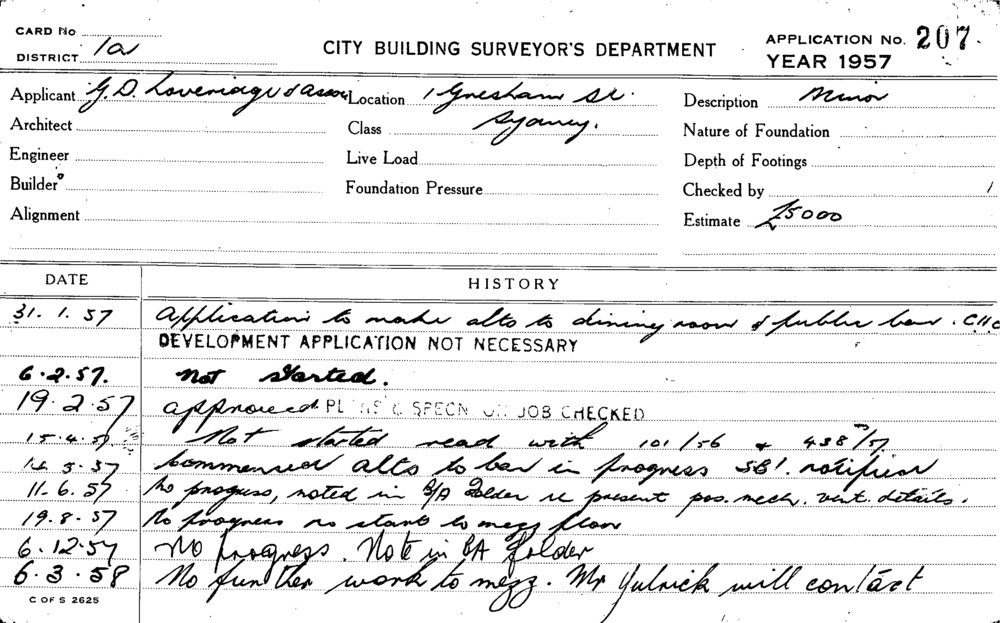 CARD No
DISTRICT 1a
CITY BUILDING SURVEYOR'S DEPARTMENT
APPLICATION No. 207.
YEAR 1957
Applicant G.D. Loveridge & Assoc Location 1 Gresham St. Description Minor
Architect Class Sydney. Nature of Foundation
Engineer Live Load Depth of Footings
Builder Foundation Pressure Checked by
Alignment Estimate £5000
DATE HISTORY
31. 1. 57 Application to make alts to dining room & public bar.
DEVELOPMENT APPLICATION NOT NECESSARY
6.2.57. Not started.
19.2.57 approved PLANS & SPECN ON JOB CHECKED
15.4.57 Not started read with 101/56 + 438/57
14.5.57 Commenced alts to bar in progress notified
11.6.57 No progress, noted in B/A folder re present pos. mech. vent. details.
19.8.57 No progress no start to mezz floor
6.12.57 No progress. Note in BA folder
6.3.58 No further work to mezz. Mr will contact
C OF S 2625